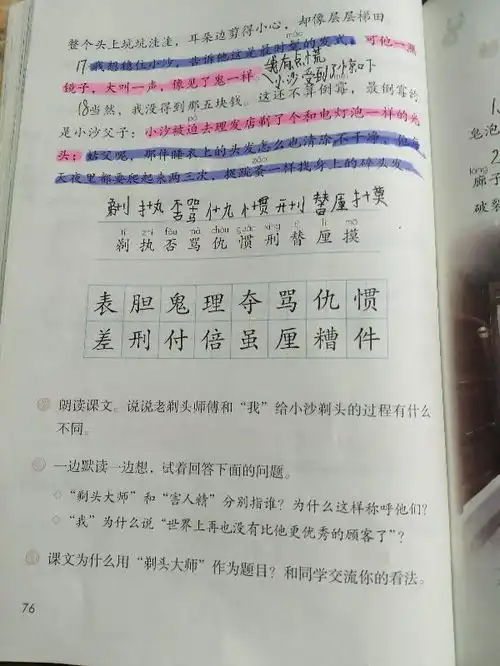 整个头上坑坑洼洼，耳朵边剪得小心，却像层层梯田
máo
17我想稳住小沙，告诉他这是最时髦的发式。可他一照
我有点慌
镜子，大叫一声，像见了鬼一样。
小沙受到了惊吓
18当然，我没得到那五块钱。这还不算倒霉，最倒霉的
pò
是小沙父子：小沙被迫去理发店剃了个和电灯泡一样的光
头；姑父呢，那件睡衣上的头发怎么也清除不干净，他每
zǎo
天夜里都要爬起来两三次，捉跳蚤一样找身上的碎头发。
剃 执 否 骂 仇 惯 刑 替 厘 摸
tì zhí fǒu mà chóu guàn xíng tì lí mō
剃 执 否 骂 仇 惯 刑 替 厘 摸
表 胆 鬼 理 夺 骂 仇 惯
差 刑 付 倍 虽 厘 糟 件
朗读课文。说说老剃头师傅和“我”给小沙剃头的过程有什么
不同。
一边默读一边想，试着回答下面的问题。
“剃头大师”和“害人精”分别指谁？为什么这样称呼他们？
“我”为什么说“世界上再也没有比他更优秀的顾客了”？
课文为什么用“剃头大师”作为题目？和同学交流你的看法。
76
皂泡
2
láng
廊子
破裂